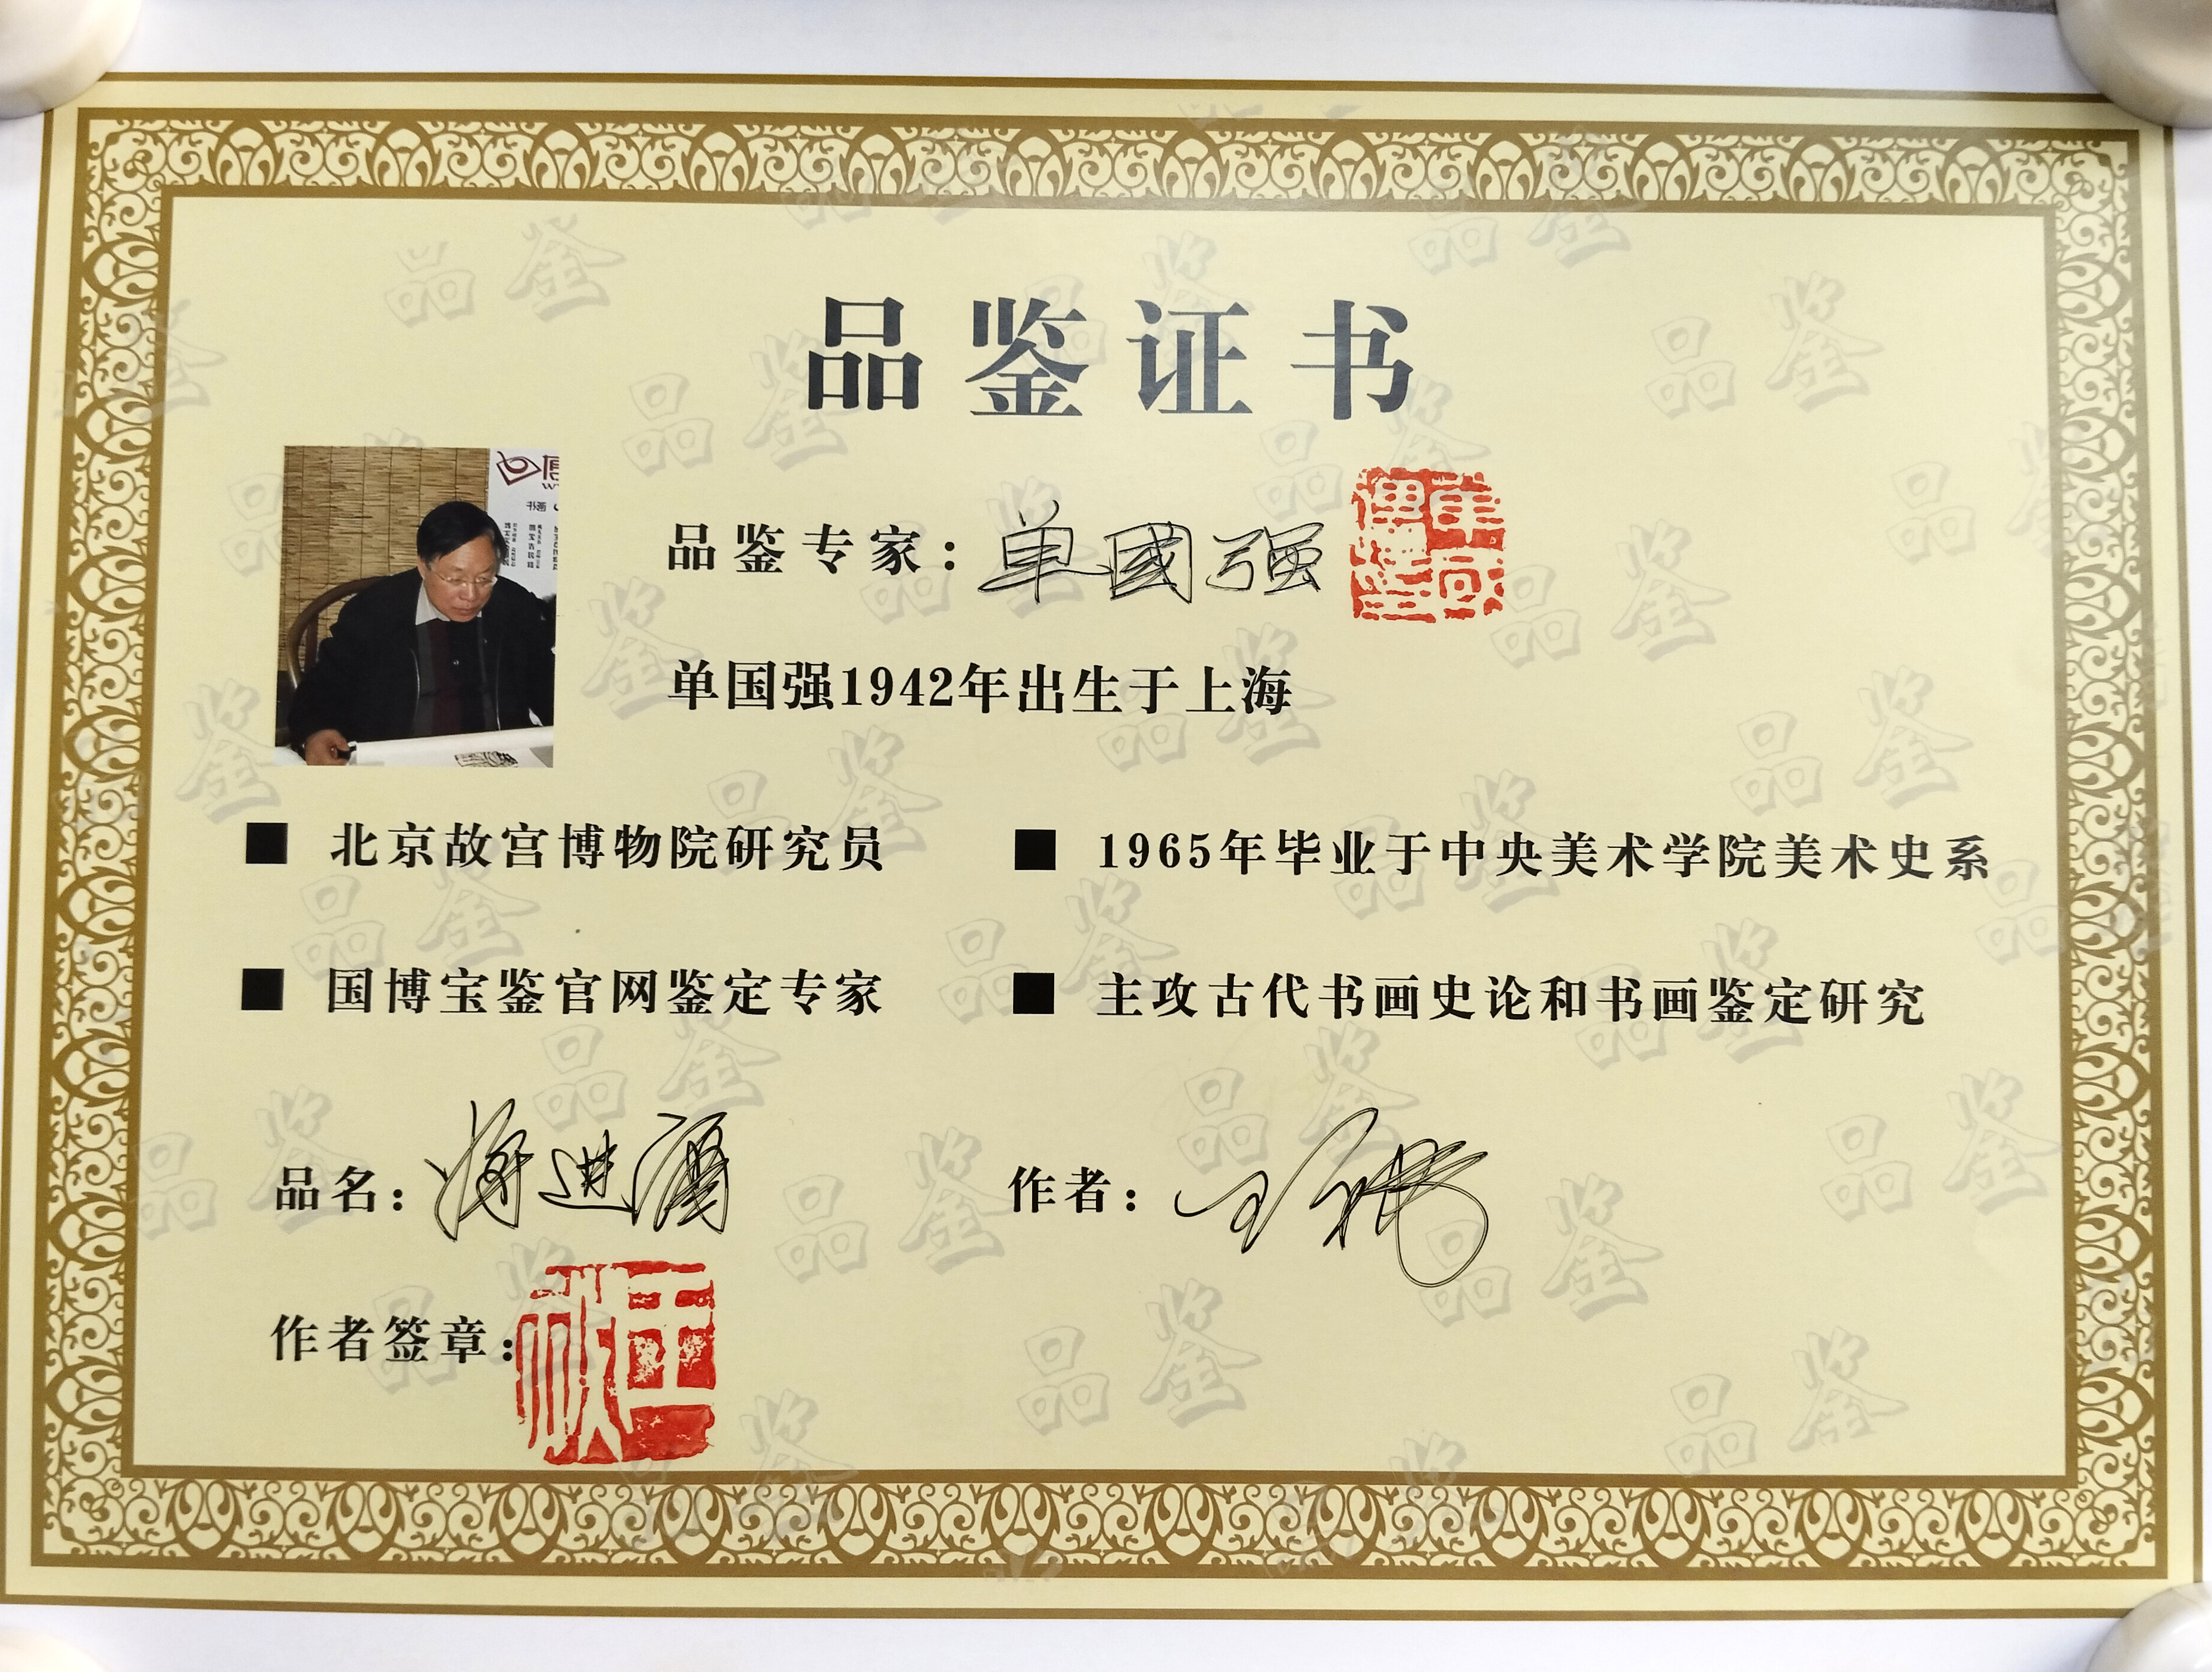 品鉴证书
书画
品鉴专家：单國强
单国强1942年出生于上海
■ 北京故宫博物院研究员
■ 1965年毕业于中央美术学院美术史系
■ 国博宝鉴官网鉴定专家
■ 主攻古代书画史论和书画鉴定研究
品名：将进酒
作者：
作者签章：
品鉴